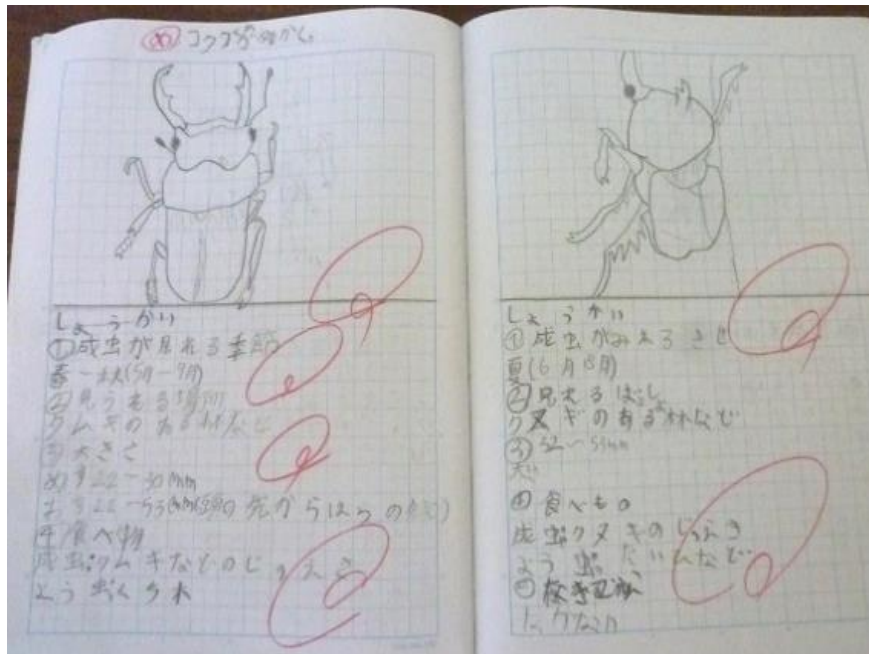 め コクワガタのずかん
しょうかい
①成虫が見れる季節
春〜秋(5月〜9月)
②見られる場所
クムギのある林など
③大きさ
めす22〜30mm
おす22〜53mm(頭の先からはらの
4食べ物
成虫クムキなどのじゅえき
よう虫くち木
しょうかい
①成虫がみえるきせ
夏(6月8月)
②見えるばしょ
クヌギのある林など
③32〜53mm
④食べもの
成虫クヌキのじゅえき
よう虫 など